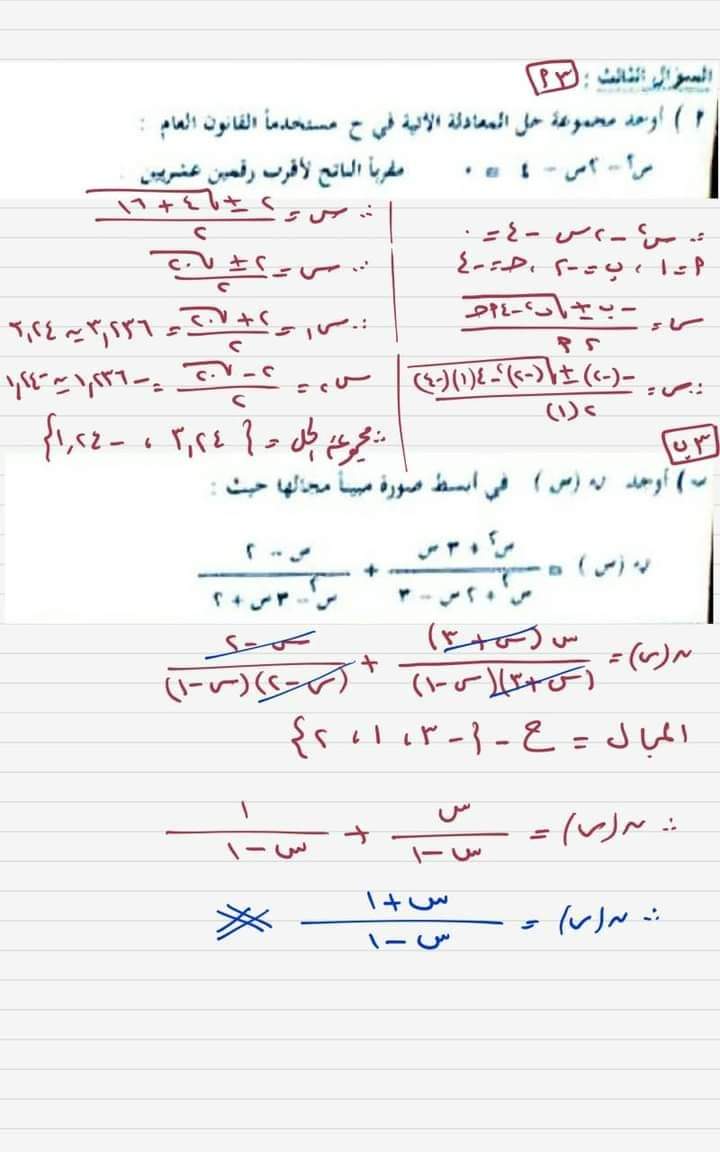 السؤال الثالث : ٣أ
أ ) أوجد مجموعة حل المعادلة الآتية في ح مستخدماً القانون العام :
س٢ - ٢س - ٤ = ٠ مقرباً الناتج لأقرب رقمين عشريين
∵ س٢ - ٢س - ٤ = ٠
أ = ١ ، ب = -٢ ، حـ = -٤
س = (-ب ± √(ب٢ - ٤أحـ)) / ٢أ
∴ س = (-(-٢) ± √((-٢)٢ - ٤(١)(-٤))) / ٢(١)
∴ س = (٢ ± √(٤ + ١٦)) / ٢
∴ س = (٢ ± √٢٠) / ٢
∴ س١ = (٢ + √٢٠) / ٢ = ٣,٢٣٦ ≈ ٣,٢٤
س٢ = (٢ - √٢٠) / ٢ = -١,٢٣٦ ≈ -١,٢٤
∴ مجموعة الحل = { ٣,٢٤ ، -١,٢٤ }
٣ب
ب ) أوجد ن (س) في أبسط صورة مبيناً مجالها حيث :
ن (س) = (س٢ + ٣س) / (س٢ + ٢س - ٣) + (س - ٢) / (س٢ - ٣س + ٢)
ن(س) = س(س+٣) / (س+٣)(س-١) + (س-٢) / (س-٢)(س-١)
المجال = ح - {-٣ ، ١ ، ٢}
∴ ن(س) = س / (س-١) + ١ / (س-١)
∴ ن(س) = (س+١) / (س-١)